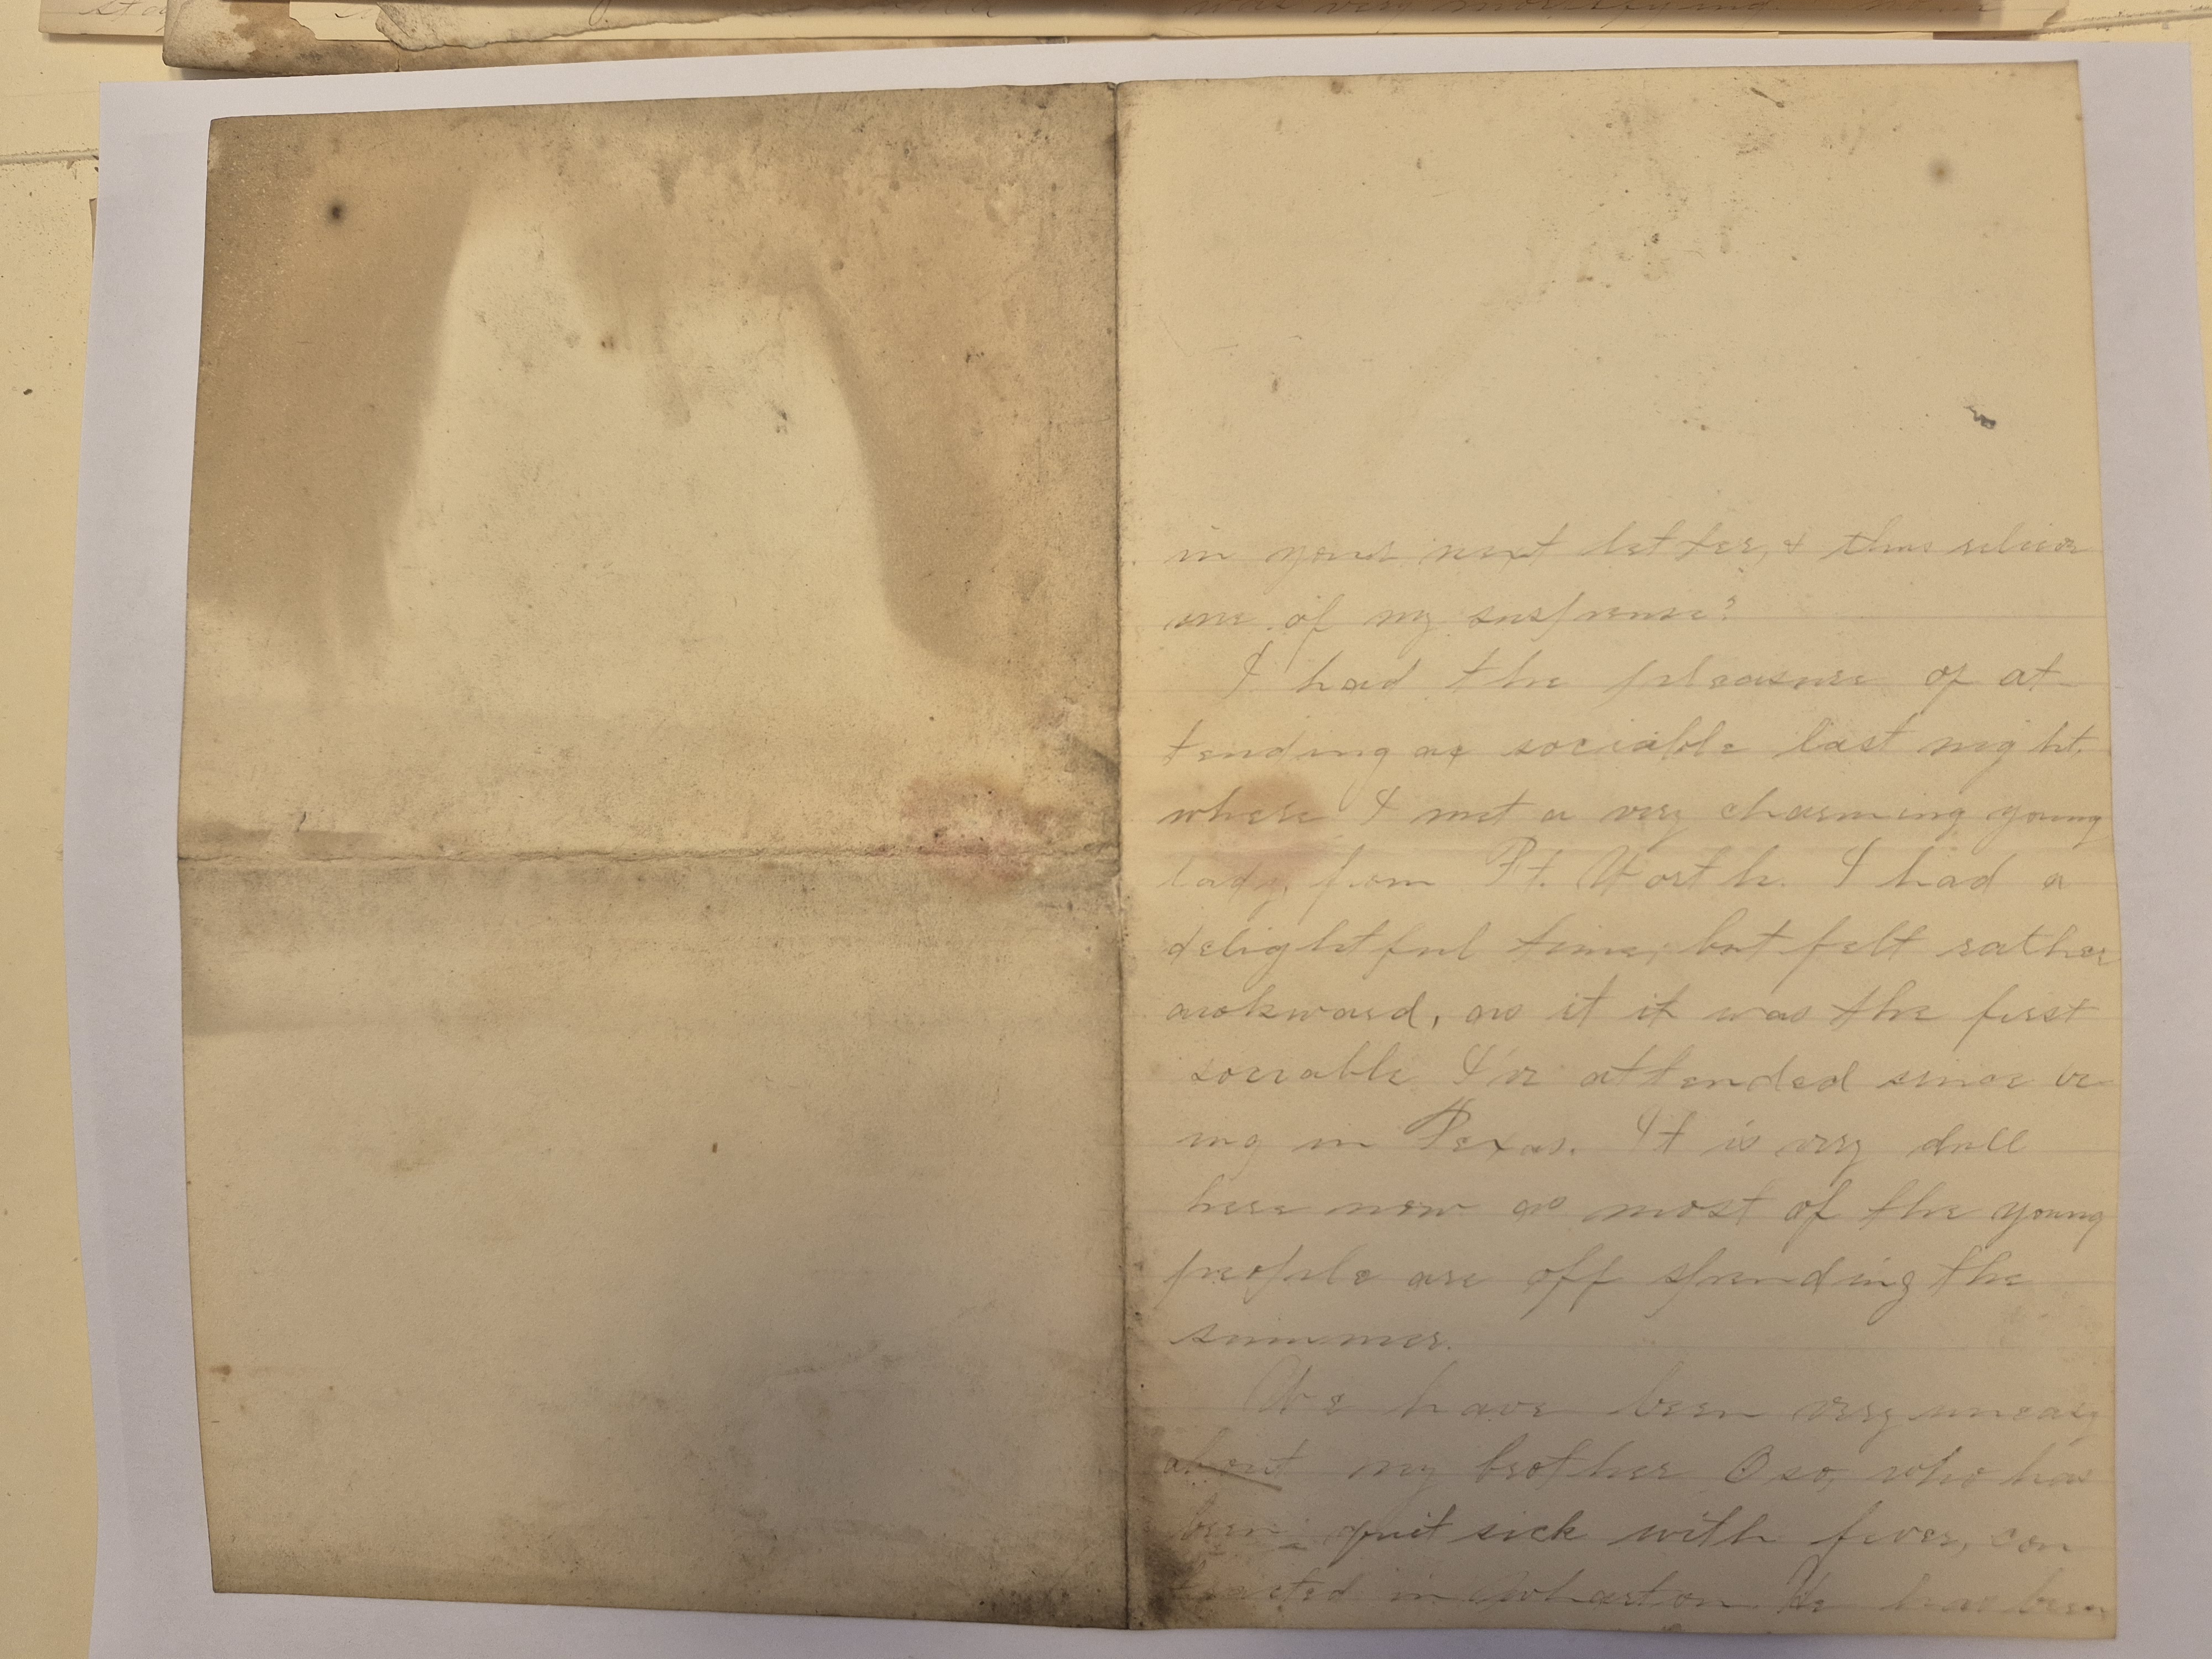 was very mortifying.
in your next letter, & thus relieve
me of my suspense?
I had the pleasure of at-
tending a sociable last night,
where I met a very charming young
lady, from Ft. Worth. I had a
delightful time, but felt rather
awkward, as it it was the first
sociable I've attended since
ing in Texas. It is very dull
here now as most of the young
people are off spending the
summer.
We have been very uneasy
about my brother who has
been quit sick with fever, con
tracted in Wharton. He has been